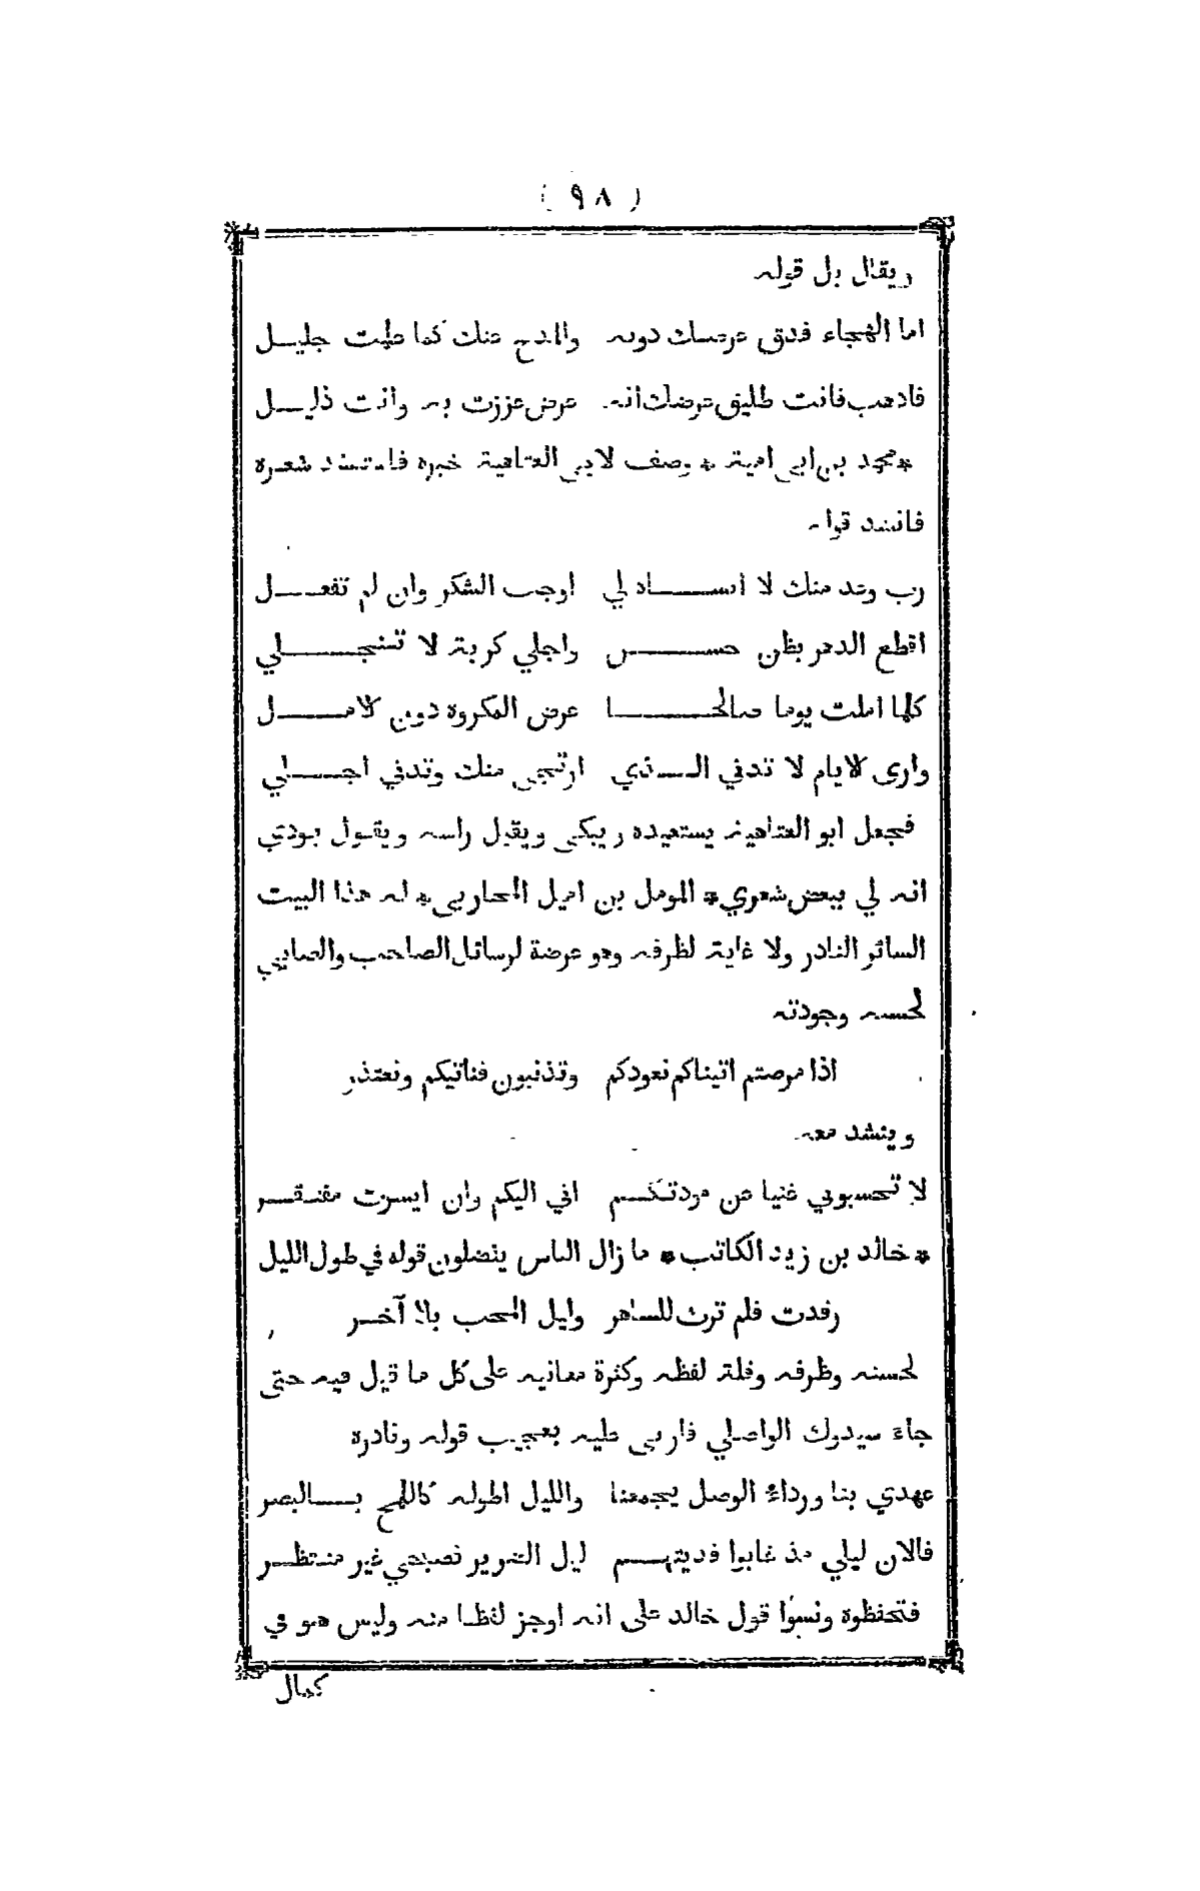 ( ٩٨ )
ويقال بل قوله
اما الهجاء فدق عرضك دونه والمدح عنك كما علمت جليـل
فاذهب فانت طليق عرضك انه عرض عززت به وانت ذليـل
*محمد بن ابي امية * وصف لابي العتاهية خبره فاستنشد شعره
فانشد قوله
رب وعد منك لا انســـاه لي اوجب الشكر وان لم تفعــل
اقطع الدهر بظن حســـن واجلي كربة لا تنجـــلي
كلما املت يوما صالحـــا عرض المكروه دون الامـــل
وارى الايام لا تدني الــذي ارتجي منك وتدني اجــلي
فجعل ابو العتاهية يستعيده ويبكي ويقبل راسه ويقول بودي
انه لي ببعض شعري * المومل بن اميل المحاربي * له هذا البيت
السائر النادر ولا غاية لظرفه وهو عرضة لرسائل الصاحب والصابي
لحسنه وجودته
اذا مرضتم اتيناكم نعودكم وتذنبون فناتيكم ونعتذر
وينشد معه
لا تحسبوني غنيا عن مودتكـم اني اليكم وان ايسرت مفتقـر
* خالد بن زيد الكاتب * ما زال الناس يفضلون قوله في طول الليل
رقدت فلم ترث للساهر وليل المحب بلا آخـر
لحسنه وظرفه وقلة لفظه وكثرة معانيه على كل ما قيل فيه حتى
جاء سيدوك الواصلي فاربى عليه بعجيب قوله ونادره
عهدي بنا ورداء الوصل يجمعنا والليل اطوله كاللمح بــالبصر
فالان ليلي مذ غابوا فديتهـم ليل الضرير فصبحي غير منتظـر
فتحفظوه ونسوا قول خالد على انه اوجز لفظا منه وليس هو في
كمال